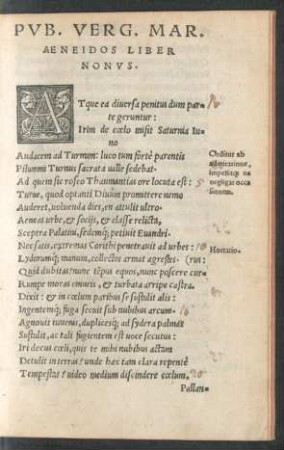 PVB. VERG. MAR.
AENEIDOS LIBER
NONVS.
ATque ea diversa penitus dum par=
te geruntur:
Irim de cœlo misit Saturnia Iu=
no
Audacem ad Turnum: luco tum fortè parentis
Pilumni Turnus sacrata ualle sedebat.
Ad quem sic roseo Thaumantias ore locuta est: 5
Turne, quod optanti Divûm promittere nemo
Auderet, uoluenda dies, en attulit ultro.
Aeneas urbe, & socijs, & classe relicta,
Sceptra Palatini, sedemq; petiuit Euandri.
Nec satis, extremas Corithi penetrauit ad urbes: 10
Lydorumq; manum, collectos armat agrestes.
Quid dubitas? nunc tẽpus equos, nunc poscere cur=
(rus:
Rumpe moras omnes, & turbata arripe castra.
Dixit: & in cœlum paribus se sustulit alis:
Ingentemq; fuga secuit sub nubibus arcum. 15
Agnouit iuuenis, duplicesq; ad sydera palmas
Sustulit, ac tali fugientem est uoce secutus:
Iri decus cœli, quis te mihi nubibus actam
Detulit in terras? unde hæc tam clara repentè
Tempestas? video medium discindere cœlum, 20
Pallan=
Orditur ab
impellitq; ne
negligat occa
sionem.
Hortatio.